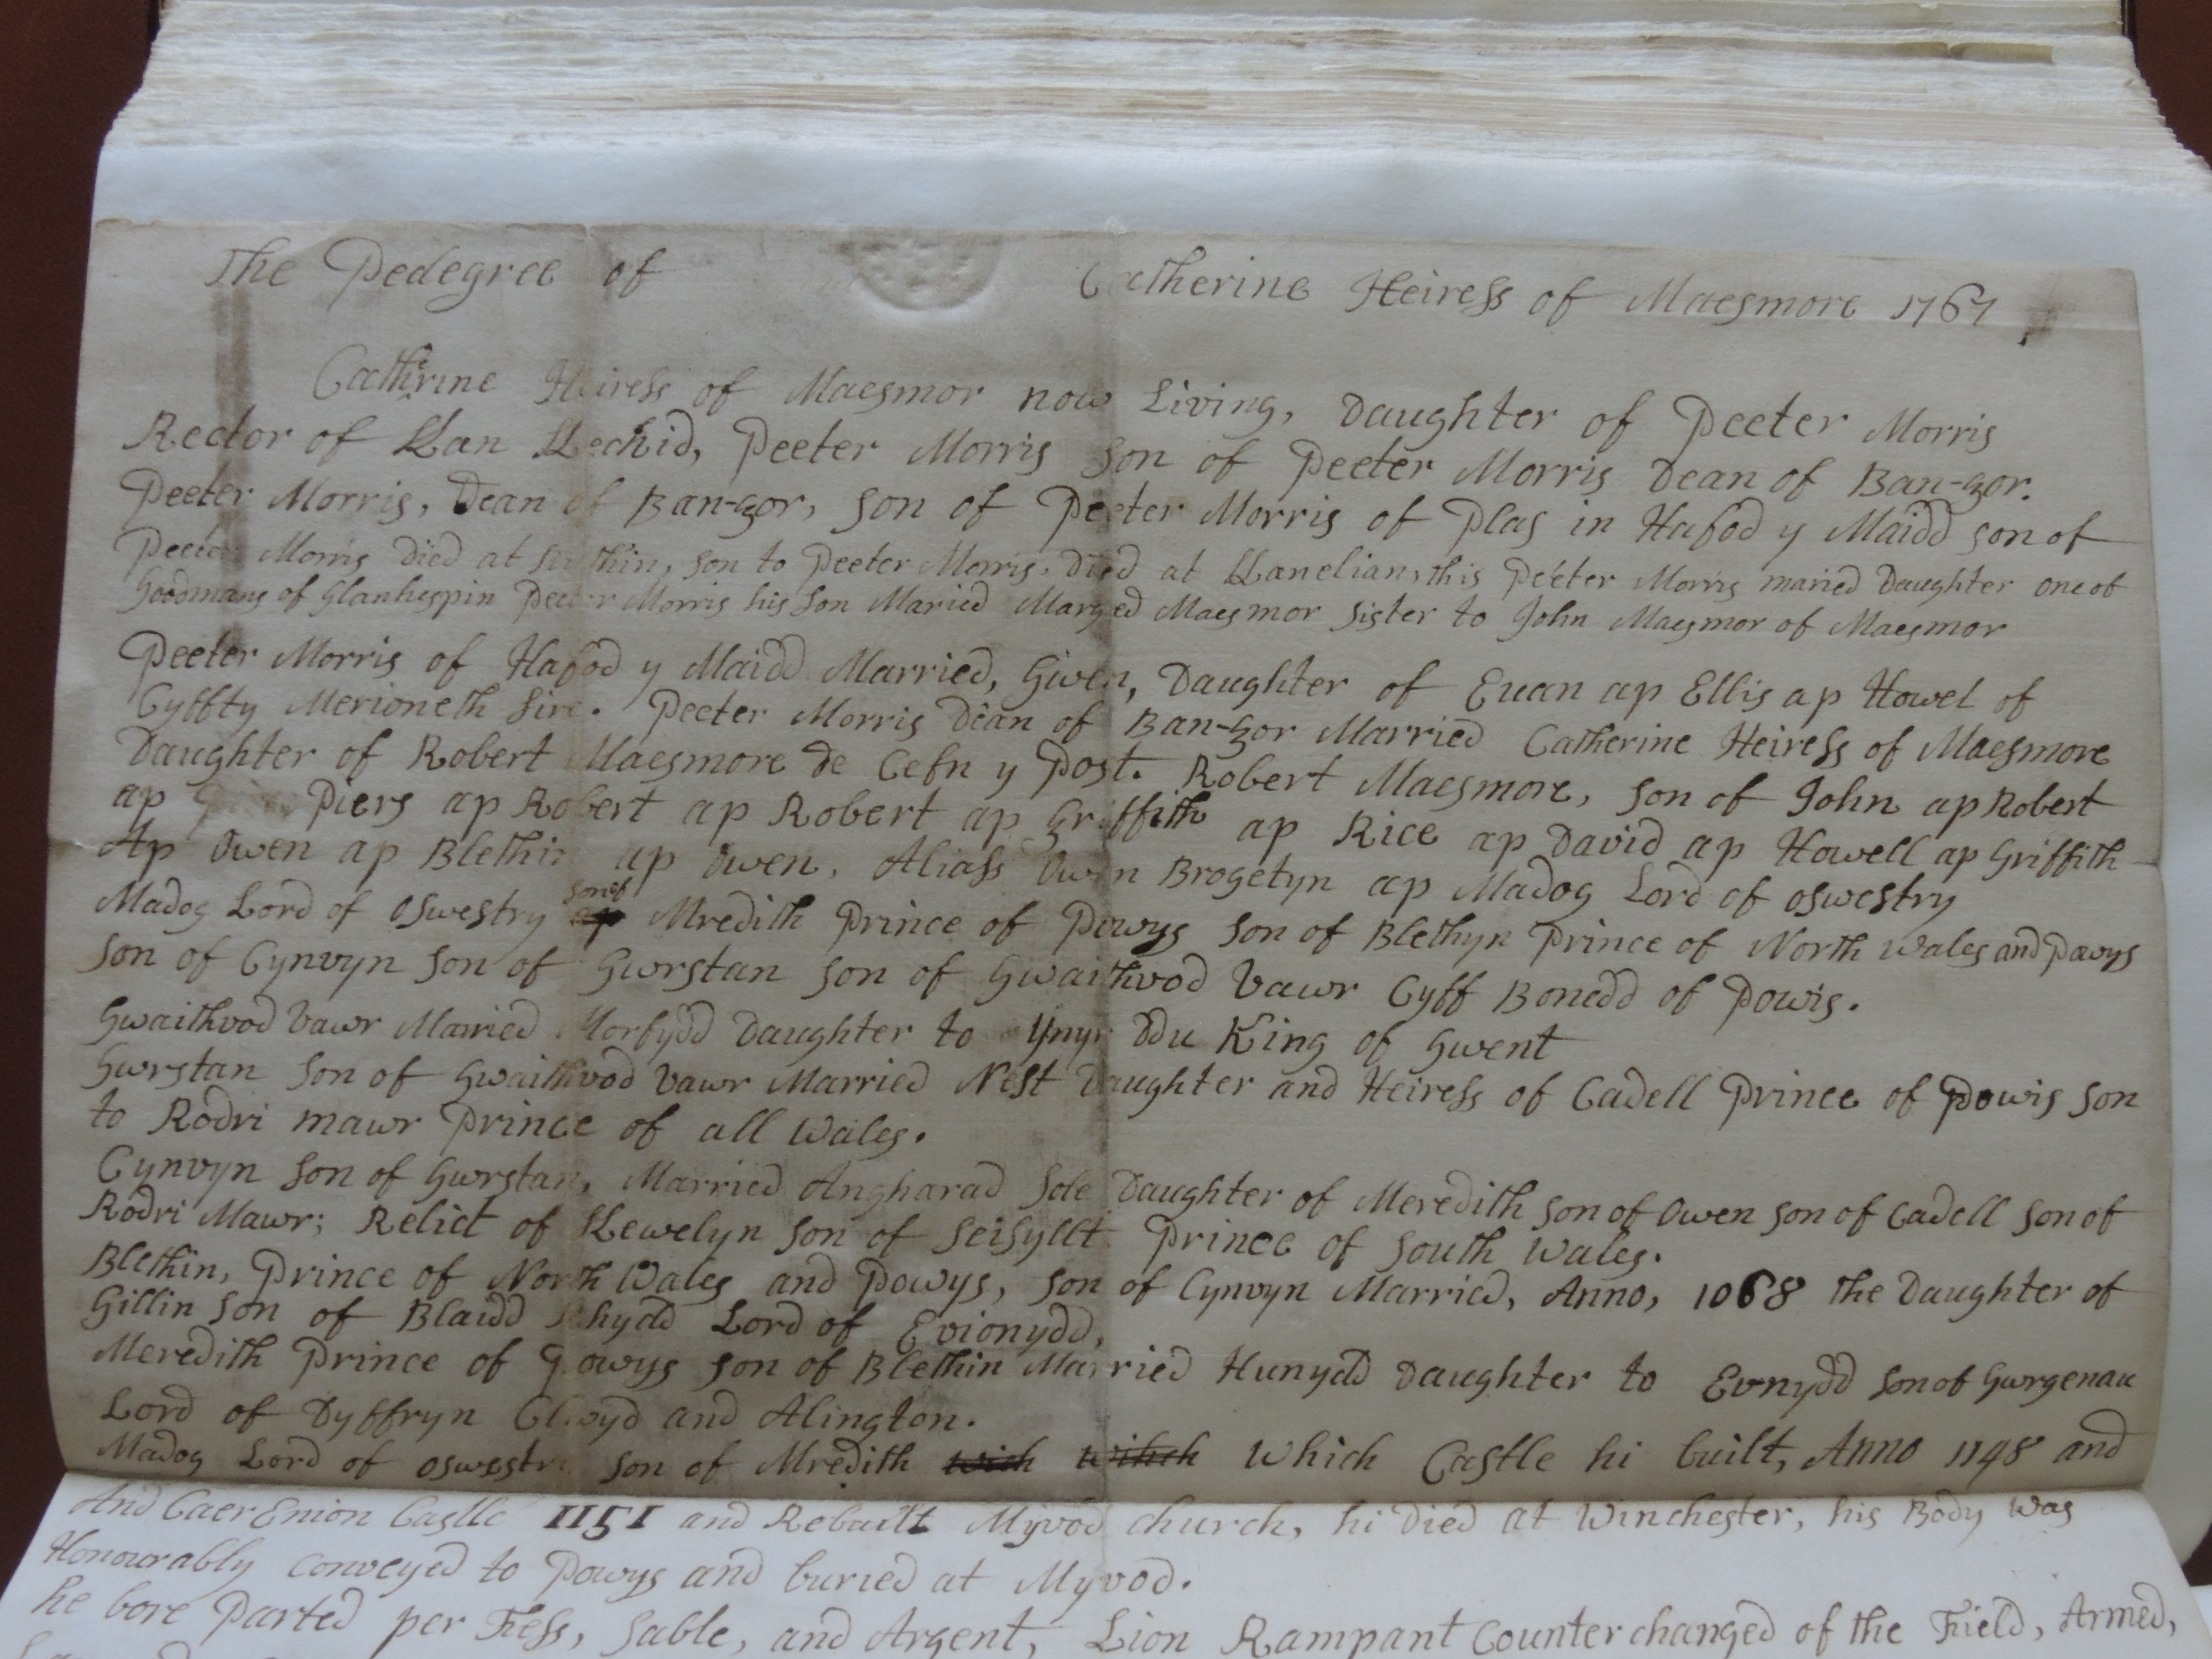 The Pedegree of Catherine Heiress of Maesmore 1767
Cathrine Heiress of Maesmor now Living, Daughter of Peeter Morris
Rector of Llan Llechid, Peeter Morris Son of Peeter Morris Dean of Ban-gor.
Peeter Morris, Dean of Ban-gor, Son of Peeter Morris of Plas in Hafod y Maidd son of
Peeter Morris Died at Ruthin, son to Peeter Morris. Died at Llanelian, this Peeter Morris maried Daughter one of
Goodmans of Glanhespin Peeter Morris his Son Maried Marged Maesmor Sister to John Maesmor of Maesmor
Peeter Morris of Hafod y Maidd Married, Gwen, Daughter of Evan ap Ellis ap Howel of
Gyffty Merioneth Sire. Peeter Morris Dean of Ban-gor Married Catherine Heiress of Maesmore
Daughter of Robert Maesmore de Cefn y Post. Robert Maesmore, Son of John ap Robert
ap Piers ap Robert ap Robert ap Griffith ap Rice ap David ap Howell ap Griffith
Ap Owen ap Blethin ap Owen, Aliass Owen Brogetyn ap Madog Lord of Oswestry
Madog Lord of Oswestry ap son of Mredith Prince of Powys Son of Blethyn Prince of North Wales and Powys
Son of Cynvyn Son of Gwrstan Son of Gwaithvod Vawr Cyff Bonedd of Powis.
Gwaithvod Vawr Married Morfydd Daughter to Ynyr Ddu King of Gwent
Gwrstan Son of Gwaithvod Vawr Married Nest Daughter and Heiress of Cadell Prince of Powis Son
to Rodri mawr Prince of all Wales.
Cynvyn Son of Gwrstan, Married Angharad Sole Daughter of Meredith Son of Owen Son of Cadell Son of
Rodri Mawr; Relict of Llewelyn Son of Seisyllt Prince of South Wales.
Blethin, Prince of North Wales and Powys, Son of Cynvyn Married, Anno, 1068 the Daughter of
Gillin Son of Blaidd Rhydd Lord of Evionydd,
Meredith Prince of Powys Son of Blethin Married Hunydd Daughter to Evnydd Son of Gwrgenau
Lord of Dyffryn Clwyd and Alington.
Madog Lord of Oswestry Son of Mredith wich wihch which Castle hi built, Anno 1148 and
And Caer Enion Castle 1151 and Rebuilt Myvod church, hi Died at Winchester, his Body was
Honourably conveyed to Powys and buried at Myvod.
he bore Parted per Fess, Sable, and Argent, Lion Rampant Counterchanged of the Field, Armed,